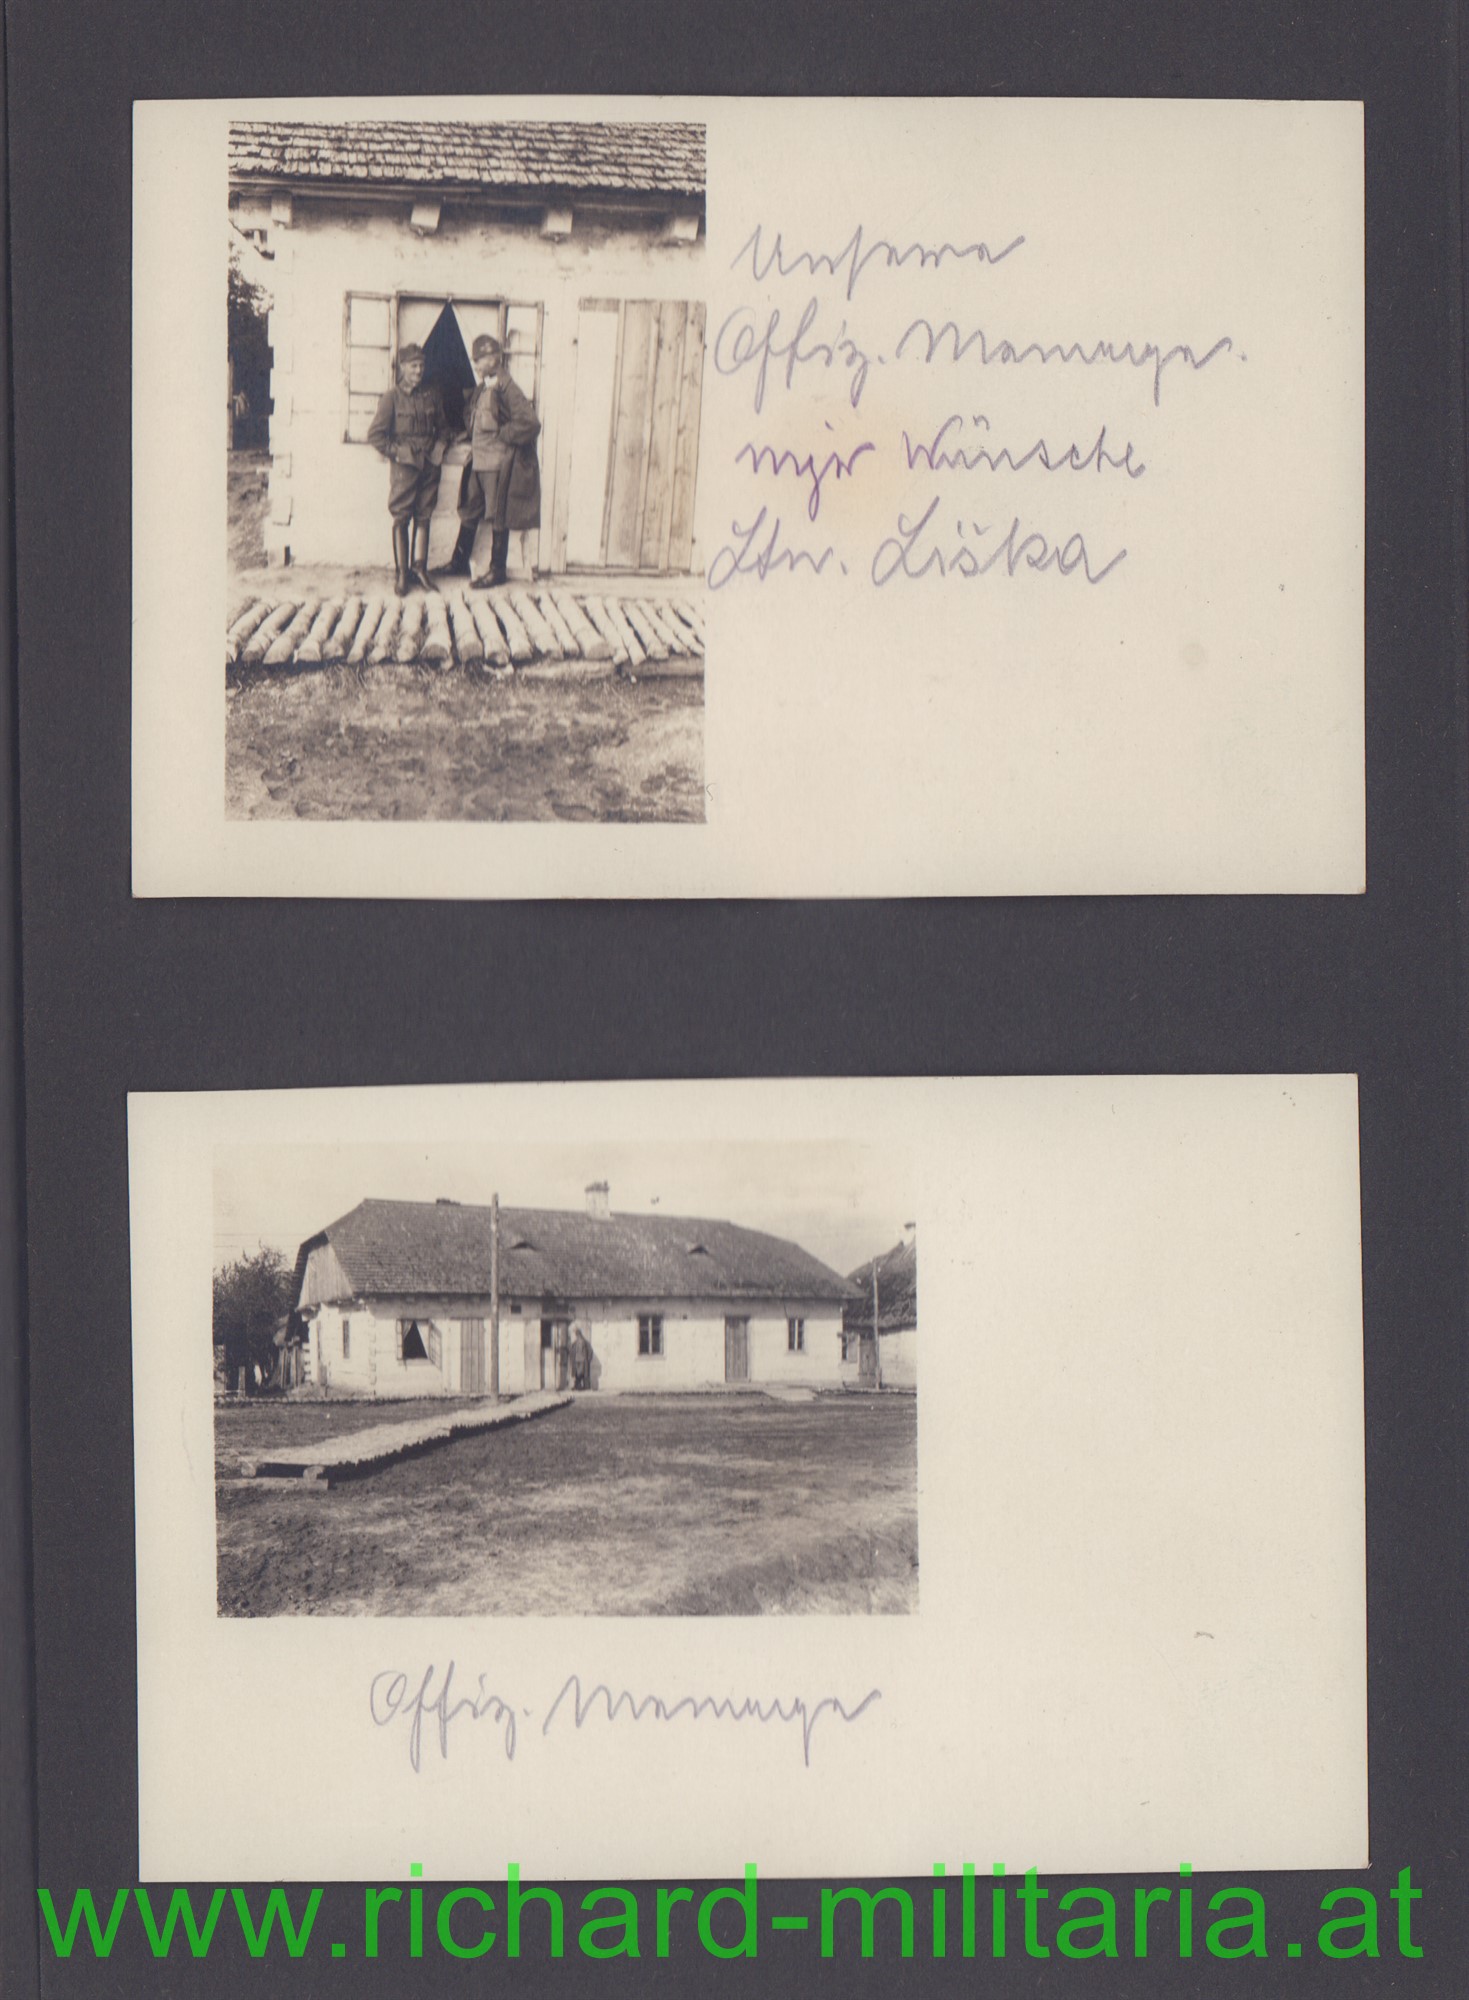 Unsere
Offiz. Menage.
mjr Wünsche
Ltn. Liška
Offiz. Menage
www.richard-militaria.at